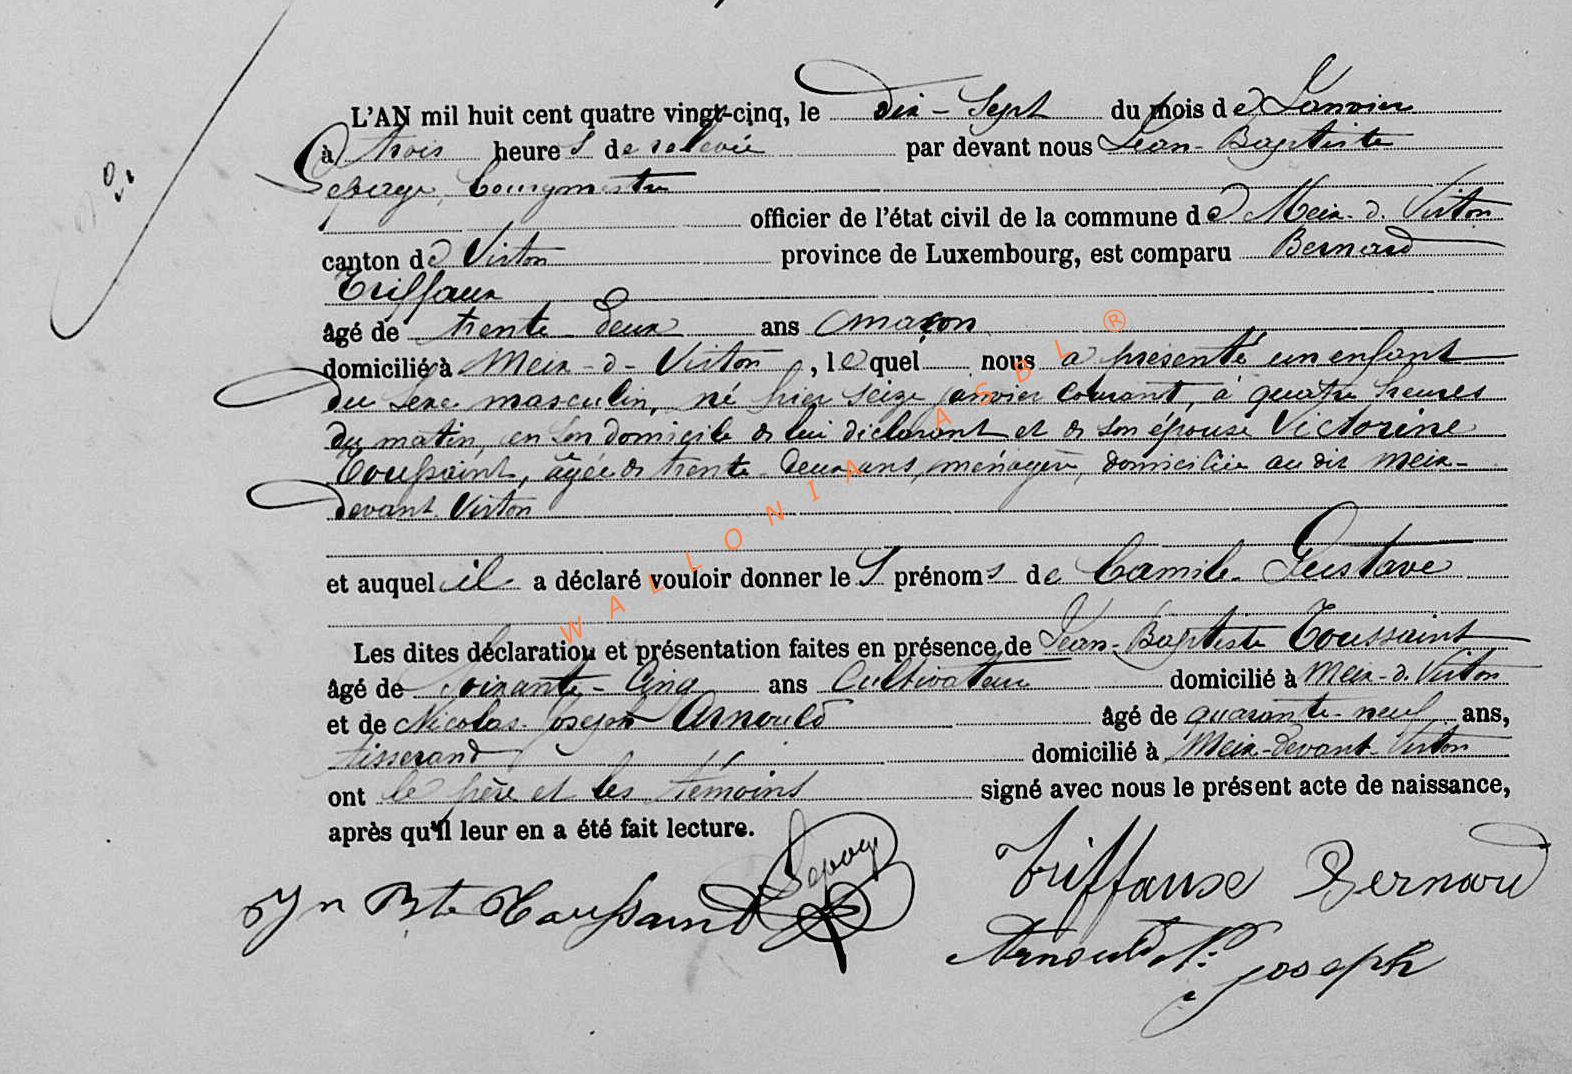 L'AN mil huit cent quatre vingt-cinq, le dix-Sept du mois de Janvier
à trois heures de relevée par devant nous Jean-Baptiste
Lepage, bourgmestre
officier de l'état civil de la commune de Meix-d. Virton
canton de Virton province de Luxembourg, est comparu Bernard
Triffaux
âgé de trente-deux ans maçon
domicilié à Meix-d-Virton, lequel nous a présenté un enfant
du sexe masculin, né hier seize janvier courant, à quatre heures
du matin, en son domicile de lui déclarant et de son épouse Victorine
Toussaint, âgée de trente-deux ans, ménagère, domiciliée au dit Meix-
devant Virton
et auquel il a déclaré vouloir donner les prénoms de Camile Gustave
Les dites déclaration et présentation faites en présence de Jean-Baptiste Toussaint
âgé de Soixante-Cinq ans Cultivateur domicilié à Meix-d. Virton
et de Nicolas Joseph Arnould âgé de quarante-neuf ans,
tisserand domicilié à Meix-devant-Virton
ont le père et les témoins signé avec nous le présent acte de naissance,
après qu'il leur en a été fait lecture.
Jn Bte Toussaint Lepage Triffaux Bernard
Arnould N. Joseph
WALLONIA ASBL ®